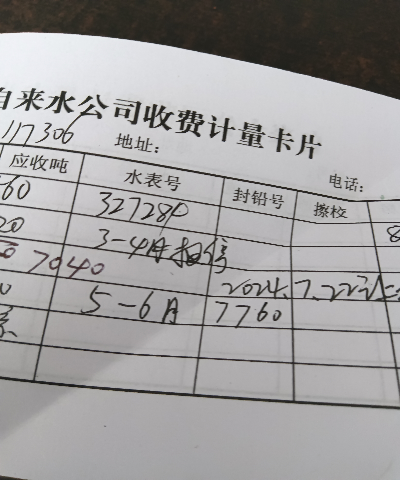 自来水公司收费计量卡片
117306 地址: 电话:
应收吨 水表号 封铅号 擦校
60 327280 8
20 3-4月
7040 2024.7.22
0 5-6月 7760